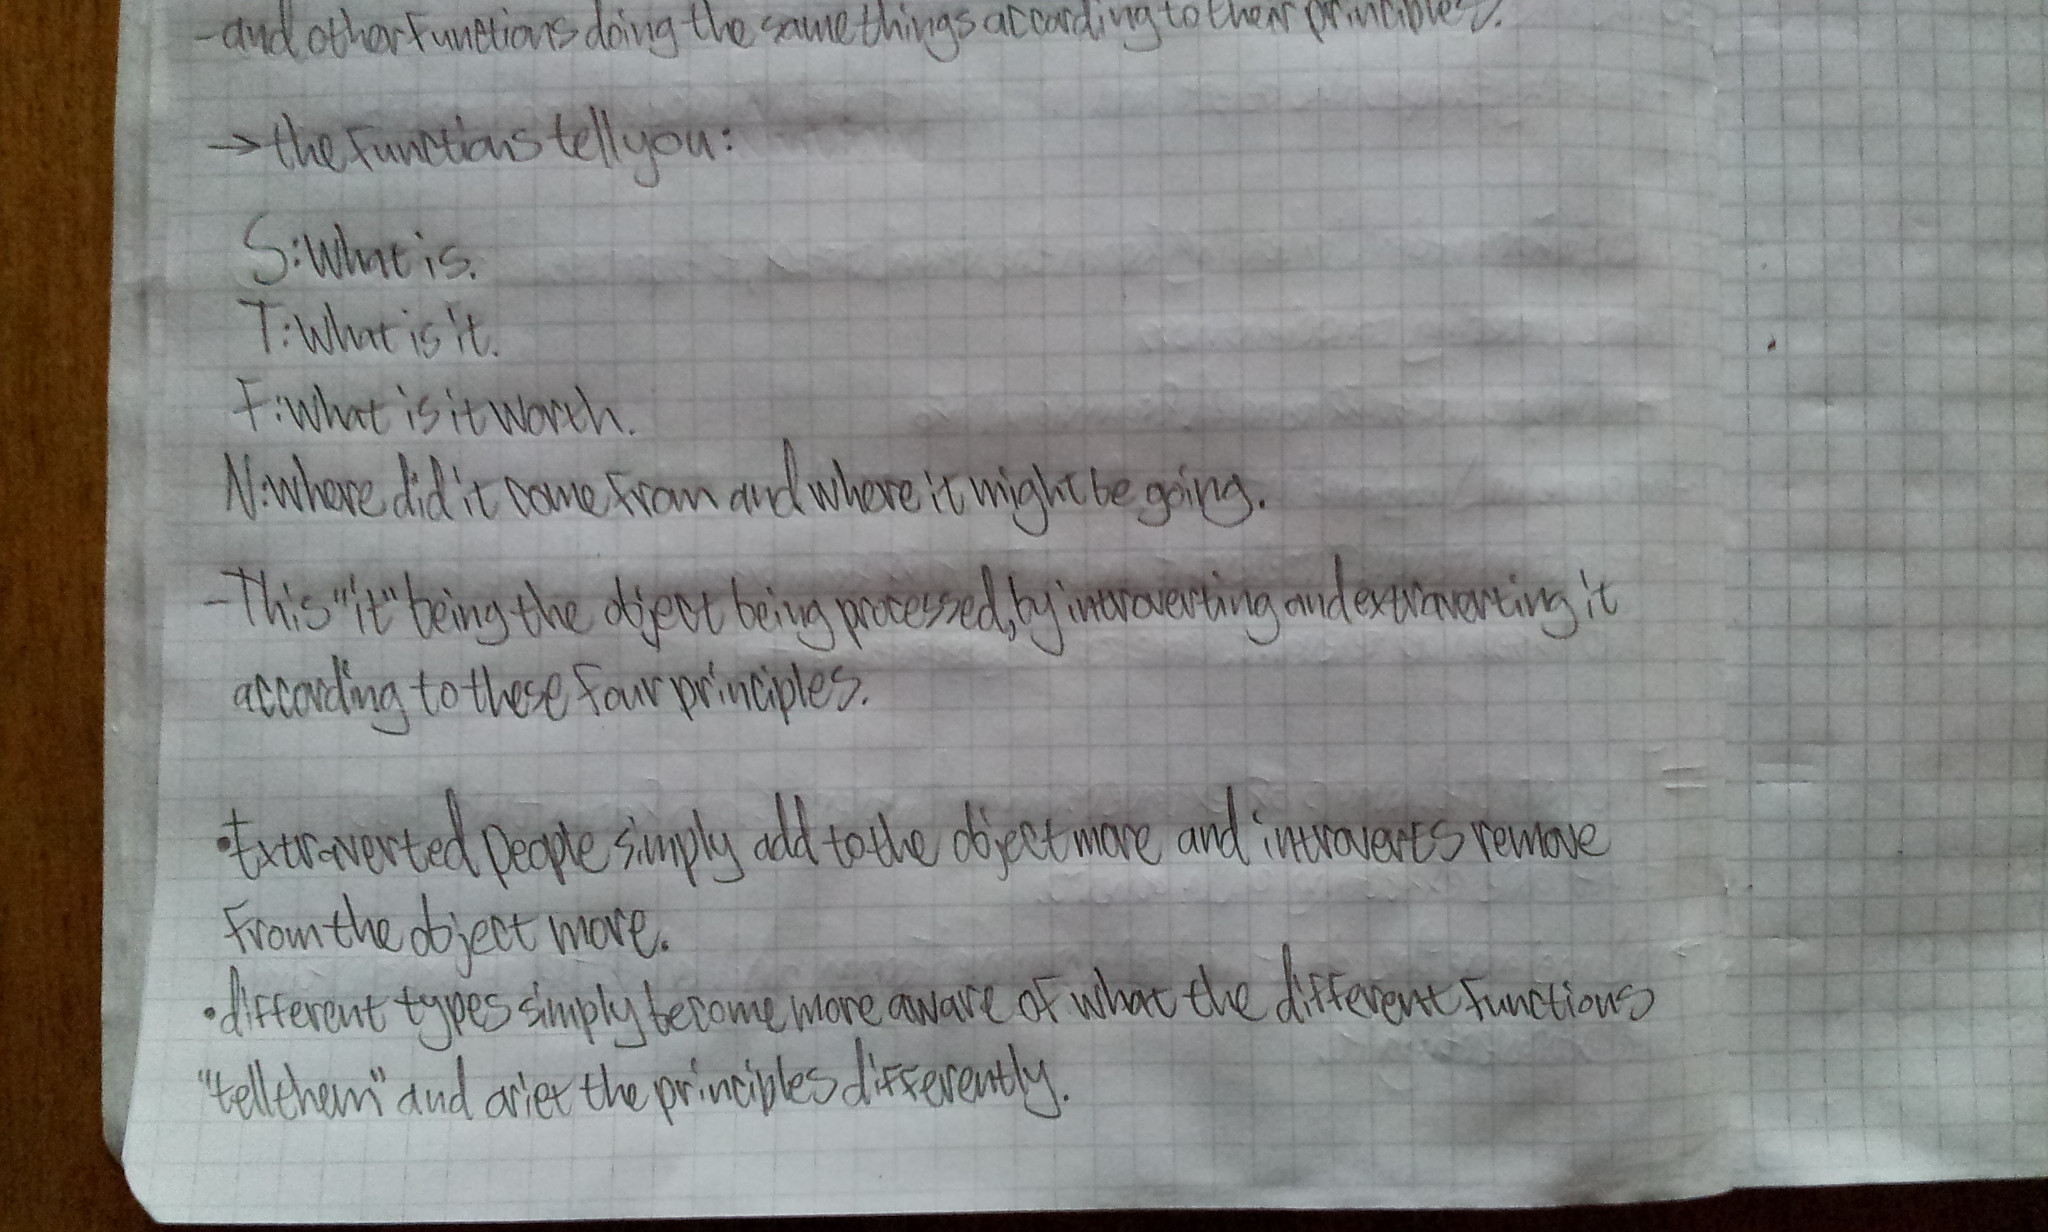 -and other functions doing the same things according to their principles.
→ the functions tell you:
S: What is.
T: What is it.
F: What is it worth.
N: where did it come from and where it might be going.
- This "it" being the object being processed, by introverting and extraverting it
according to these four principles.
• Extraverted people simply add to the object more and introverts remove
from the object more.
• different types simply become more aware of what the different functions
"tell them" and the principles differently.